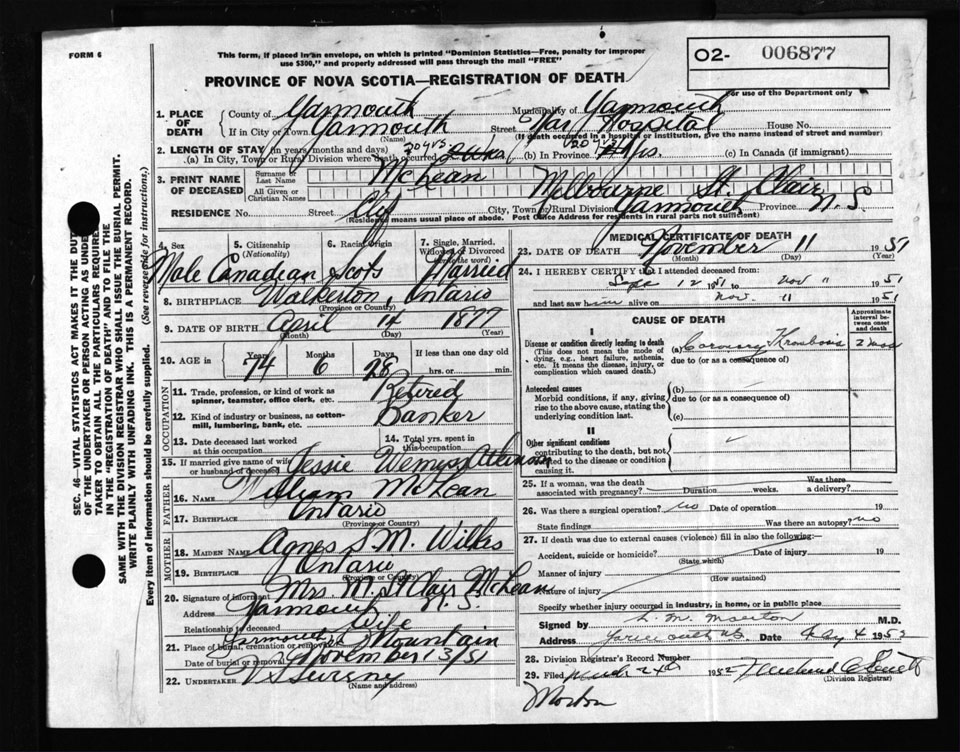 FORM 6
This form, if placed in an envelope, on which is printed "Dominion Statistics—Free, penalty for improper
use $300," and properly addressed will pass through the mail "FREE"
02- 006877
For use of the Department only
PROVINCE OF NOVA SCOTIA—REGISTRATION OF DEATH
1. PLACE OF DEATH
County of Yarmouth Municipality of Yarmouth
If in City or Town Yarmouth Street Yar. Hospital House No.
(Name) (If death occurred in a hospital or institution, give the name instead of street and number)
2. LENGTH OF STAY (in years, months and days)
(a) In City, Town or Rural Division where death occurred 30 yrs. (b) In Province 30 yrs (c) In Canada (if immigrant)
3. PRINT NAME OF DECEASED
Surname or Last Name McLean
All Given or Christian Names Melbourne St. Clair
RESIDENCE No. Street City, Town or Rural Division Yarmouth Province N.S.
(Residence means usual place of abode. Post Office Address for residents in rural parts not sufficient)
4. Sex Male
5. Citizenship (Nationality) Canadian
6. Racial Origin Scots
7. Single, Married, Widowed or Divorced (write the word) Married
8. BIRTHPLACE Walkerton, Ontario
(Province or Country)
9. DATE OF BIRTH April 14 1877
(Month) (Day) (Year)
10. AGE in Years 74 Months 6 Days 28 If less than one day old
hrs. or min.
OCCUPATION
11. Trade, profession, or kind of work as spinner, teamster, office clerk, etc. Retired
12. Kind of industry or business, as cotton-mill, lumbering, bank, etc. Banker
13. Date deceased last worked at this occupation
14. Total yrs. spent in this occupation
15. If married give name of wife or husband of deceased Jessie Wemyss Atkinson
FATHER
16. NAME William McLean
17. BIRTHPLACE Ontario
(Province or Country)
MOTHER
18. MAIDEN NAME Agnes S.M. Wilkes
19. BIRTHPLACE Ontario
(Province or Country)
20. Signature of informant Mrs. M. St Clair McLean
Address Yarmouth N.S.
Relationship to deceased Wife
21. Place of burial, cremation or removal Yarmouth Mountain
Date of burial or removal November 13/51
22. UNDERTAKER V S Sweeny
(Name and address)
MEDICAL CERTIFICATE OF DEATH
23. DATE OF DEATH November 11 1951
(Month) (Day)
24. I HEREBY CERTIFY that I attended deceased from
Sept 12 1951 to Nov 11 1951
and last saw him alive on Nov. 11 1951
CAUSE OF DEATH
Approximate interval between onset and death
I
Disease or condition directly leading to death (a) Coronary Thrombosis 2 mos
(This does not mean the mode of dying, e.g., heart failure, asthenia, etc. It means the disease, injury, or complication which caused death.)
due to (or as a consequence of)
Antecedent causes (b)
Morbid conditions, if any, giving rise to the above cause, stating the underlying condition last.
due to (or as a consequence of)
(c)
II
Other significant conditions
contributing to the death, but not related to the disease or condition causing it
25. If a woman, was the death associated with pregnancy? Duration weeks. Was there a delivery?
26. Was there a surgical operation? no Date of operation 19
State findings Was there an autopsy? no
27. If death was due to external causes (violence) fill in also the following:—
Accident, suicide or homicide? Date of injury 19
(State which)
Manner of injury
(How sustained)
Nature of injury
Specify whether injury occurred in industry, in home, or in public place
Signed by L. M. Morton M.D.
Address Yarmouth N.S. Date 4 1952
28. Division Registrar's Record Number
29. Filed 1952
(Division Registrar)
Morton
SEC. 46—VITAL STATISTICS ACT MAKES IT THE DUTY
OF THE UNDERTAKER OR PERSON ACTING AS UNDER-
TAKER TO OBTAIN ALL THE PARTICULARS REQUIRED
IN THE "REGISTRATION OF DEATH" AND TO FILE THE
SAME WITH THE DIVISION REGISTRAR WHO SHALL ISSUE THE BURIAL PERMIT.
WRITE PLAINLY WITH UNFADING INK. THIS IS A PERMANENT RECORD.
Every item of information should be carefully supplied. (See reverse side for instructions.)